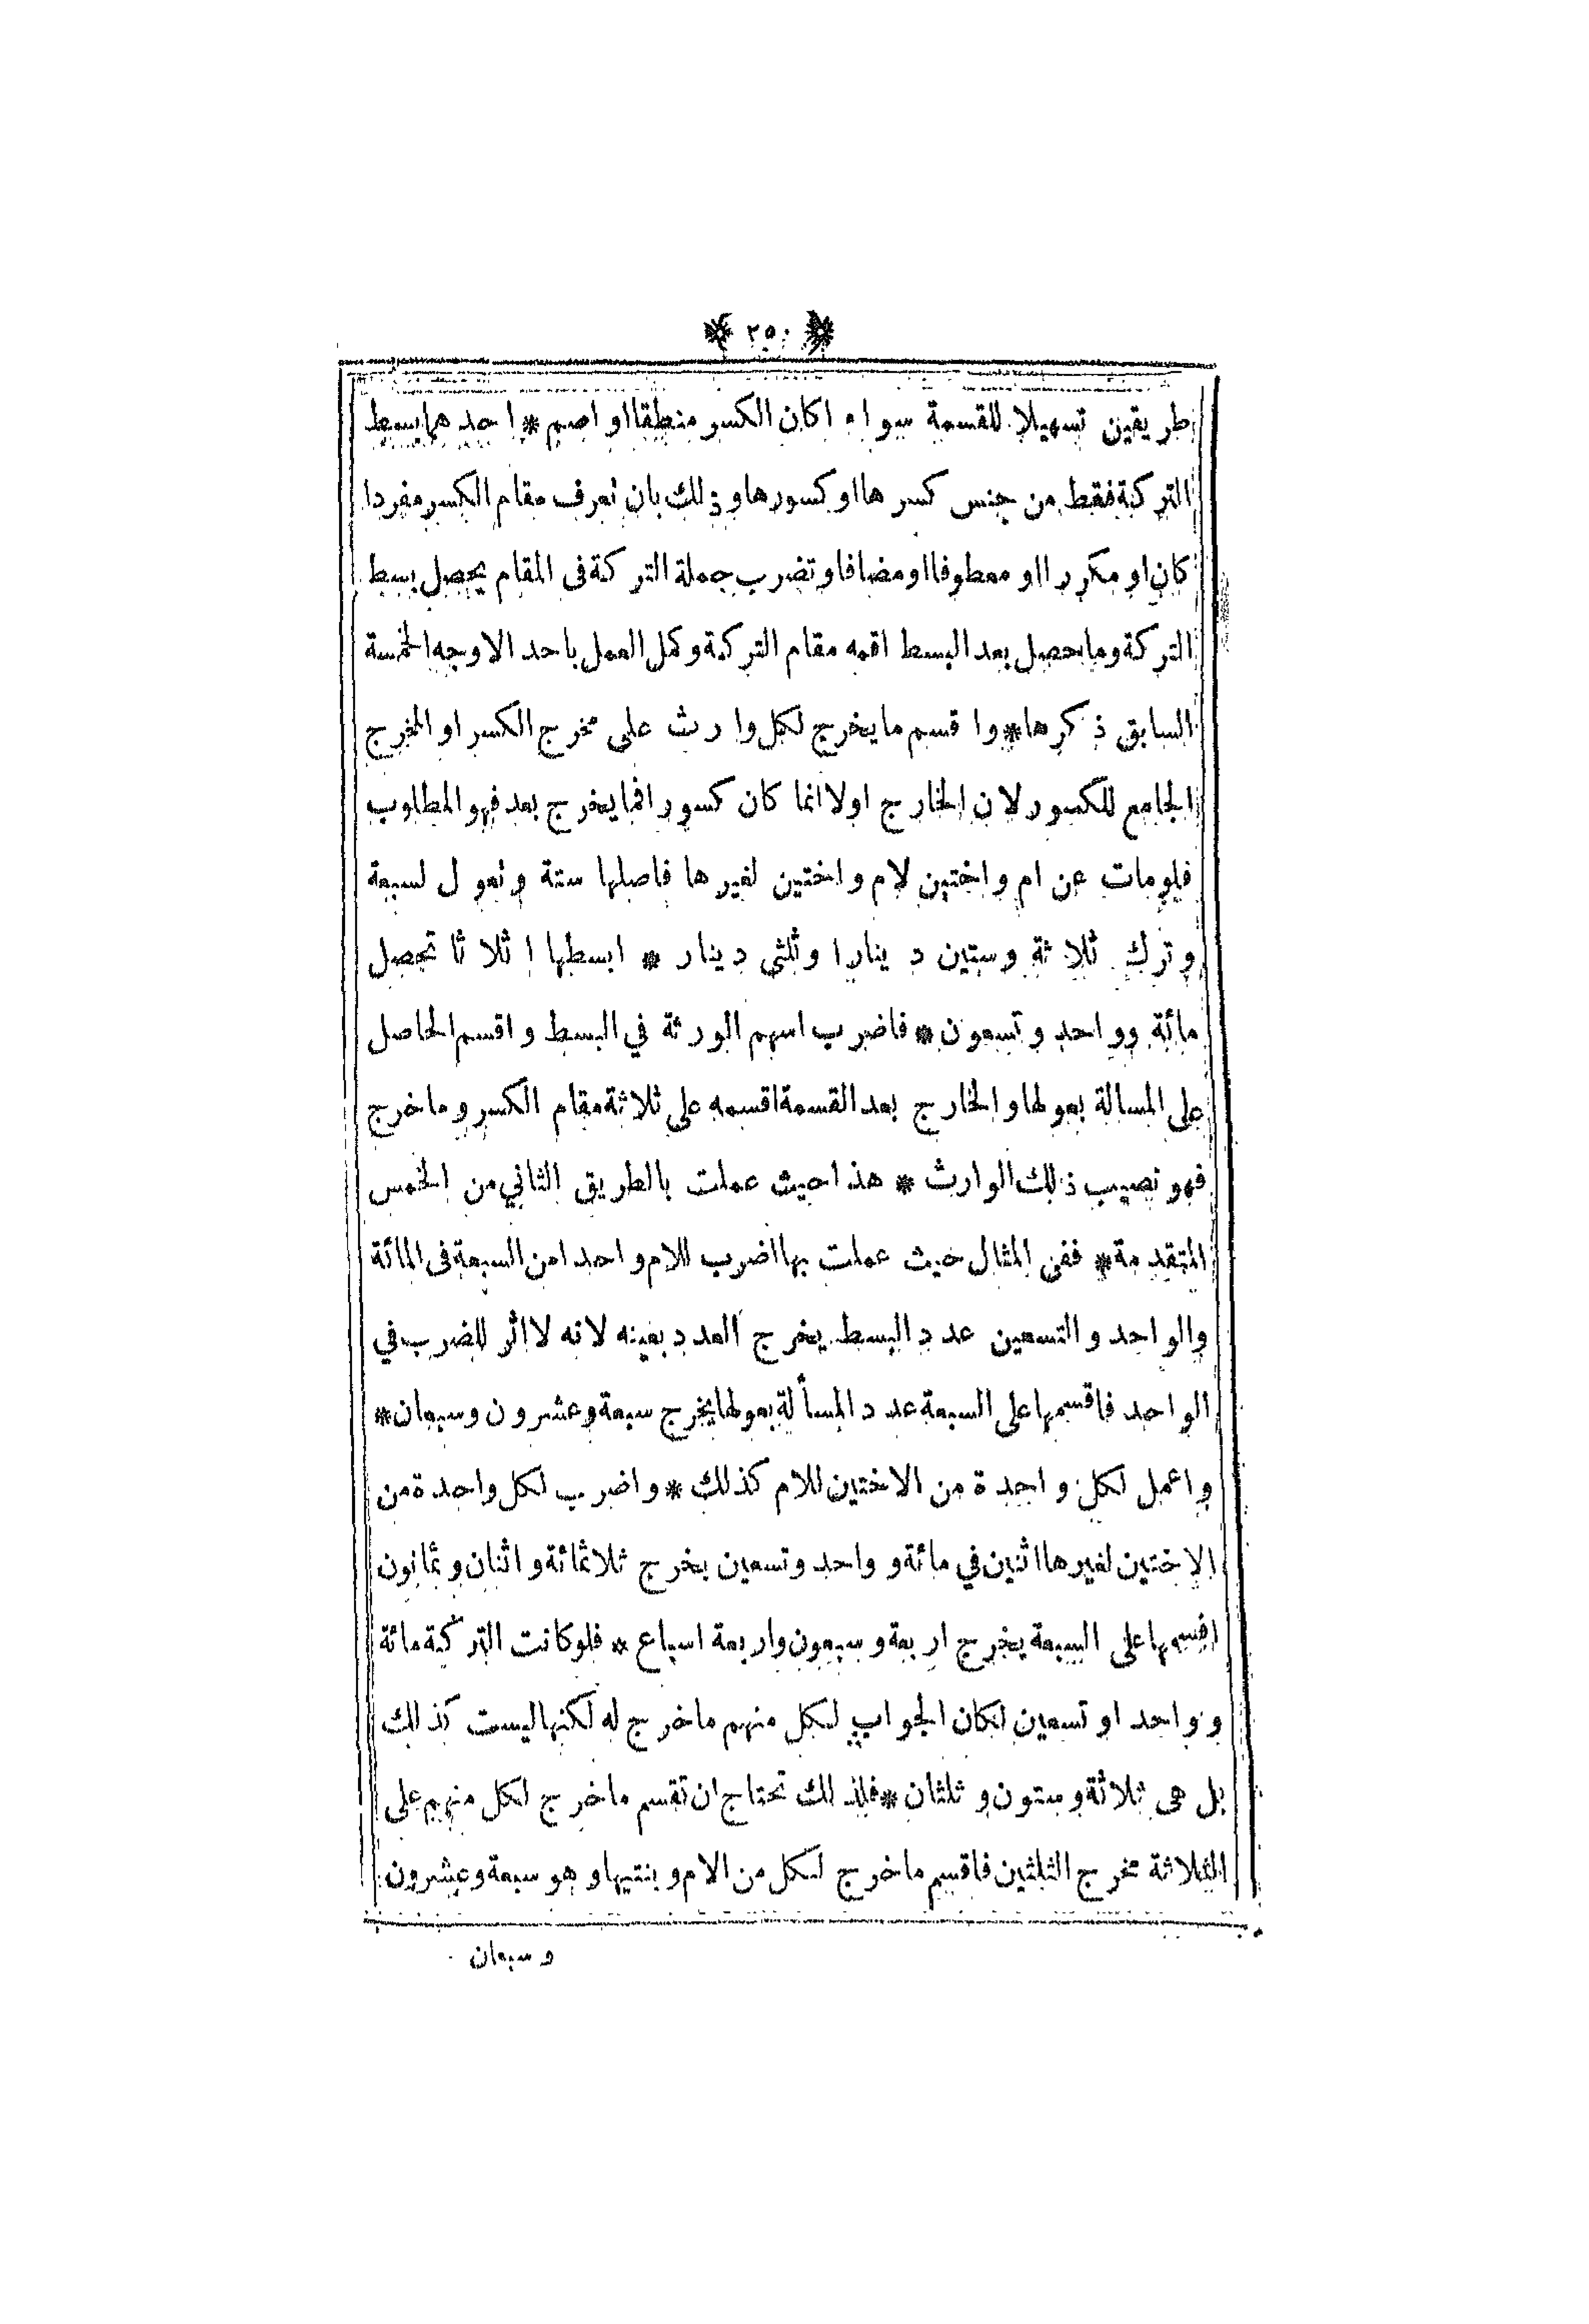 * ٢٥٠ *
طريقين تسهيلا للقسمة سواء اكان الكسر منطقا او اصم * احدهما بسط
التركة فقط من جنس كسرها او كسورها وذلك بان تعرف مقام الكسر مفردا
كان او مكررا او معطوفا او مضافا وتضرب جملة التركة فى المقام يحصل بسط
التركة وما يحصل بعد البسط اقمه مقام التركة وكمل العمل باحد الاوجه الخمسة
السابق ذكرها * واقسم ما يخرج لكل وارث على مخرج الكسر او المخرج
الجامع للكسور لان الخارج اولا انما كان كسورا فما يخرج بعد فهو المطلوب
فلومات عن ام واختين لام واختين لغيرها فاصلها ستة وتعول لسبعة
وترك ثلاثة وستين دينارا وثلثى دينار * ابسطها اثلاثا تحصل
مائة وواحد وتسعون * فاضرب اسهم الورثة في البسط واقسم الحاصل
على المسالة بعولها والخارج بعد القسمة اقسمه على ثلاثة مقام الكسر وما خرج
فهو نصيب ذلك الوارث * هذا حيث عملت بالطريق الثاني من الخمس
المتقدمة * ففى المثال حيث عملت بها اضرب للام واحدا من السبعة فى المائة
والواحد والتسعين عدد البسط يخرج العدد بعينه لانه لا اثر للضرب في
الواحد فاقسمها على السبعة عدد المسألة بعولها يخرج سبعة وعشرون وسبعان *
واعمل لكل واحدة من الاختين للام كذلك * واضرب لكل واحدة من
الاختين لغيرها اثنين في مائة و واحد وتسعين يخرج ثلاثمائة واثنان وثمانون
اقسمها على السبعة يخرج اربعة وسبعون واربعة اسباع * فلو كانت التركة مائة
و واحد او تسعين لكان الجواب لكل منهم ما خرج له لكنها ليست كذلك
بل هى ثلاثة وستون و ثلثان * فلذلك تحتاج ان تقسم ما خرج لكل منهم على
الثلاثة مخرج الثلثين فاقسم ما خرج لكل من الام و بنتيها و هو سبعة وعشرون
و سبعان